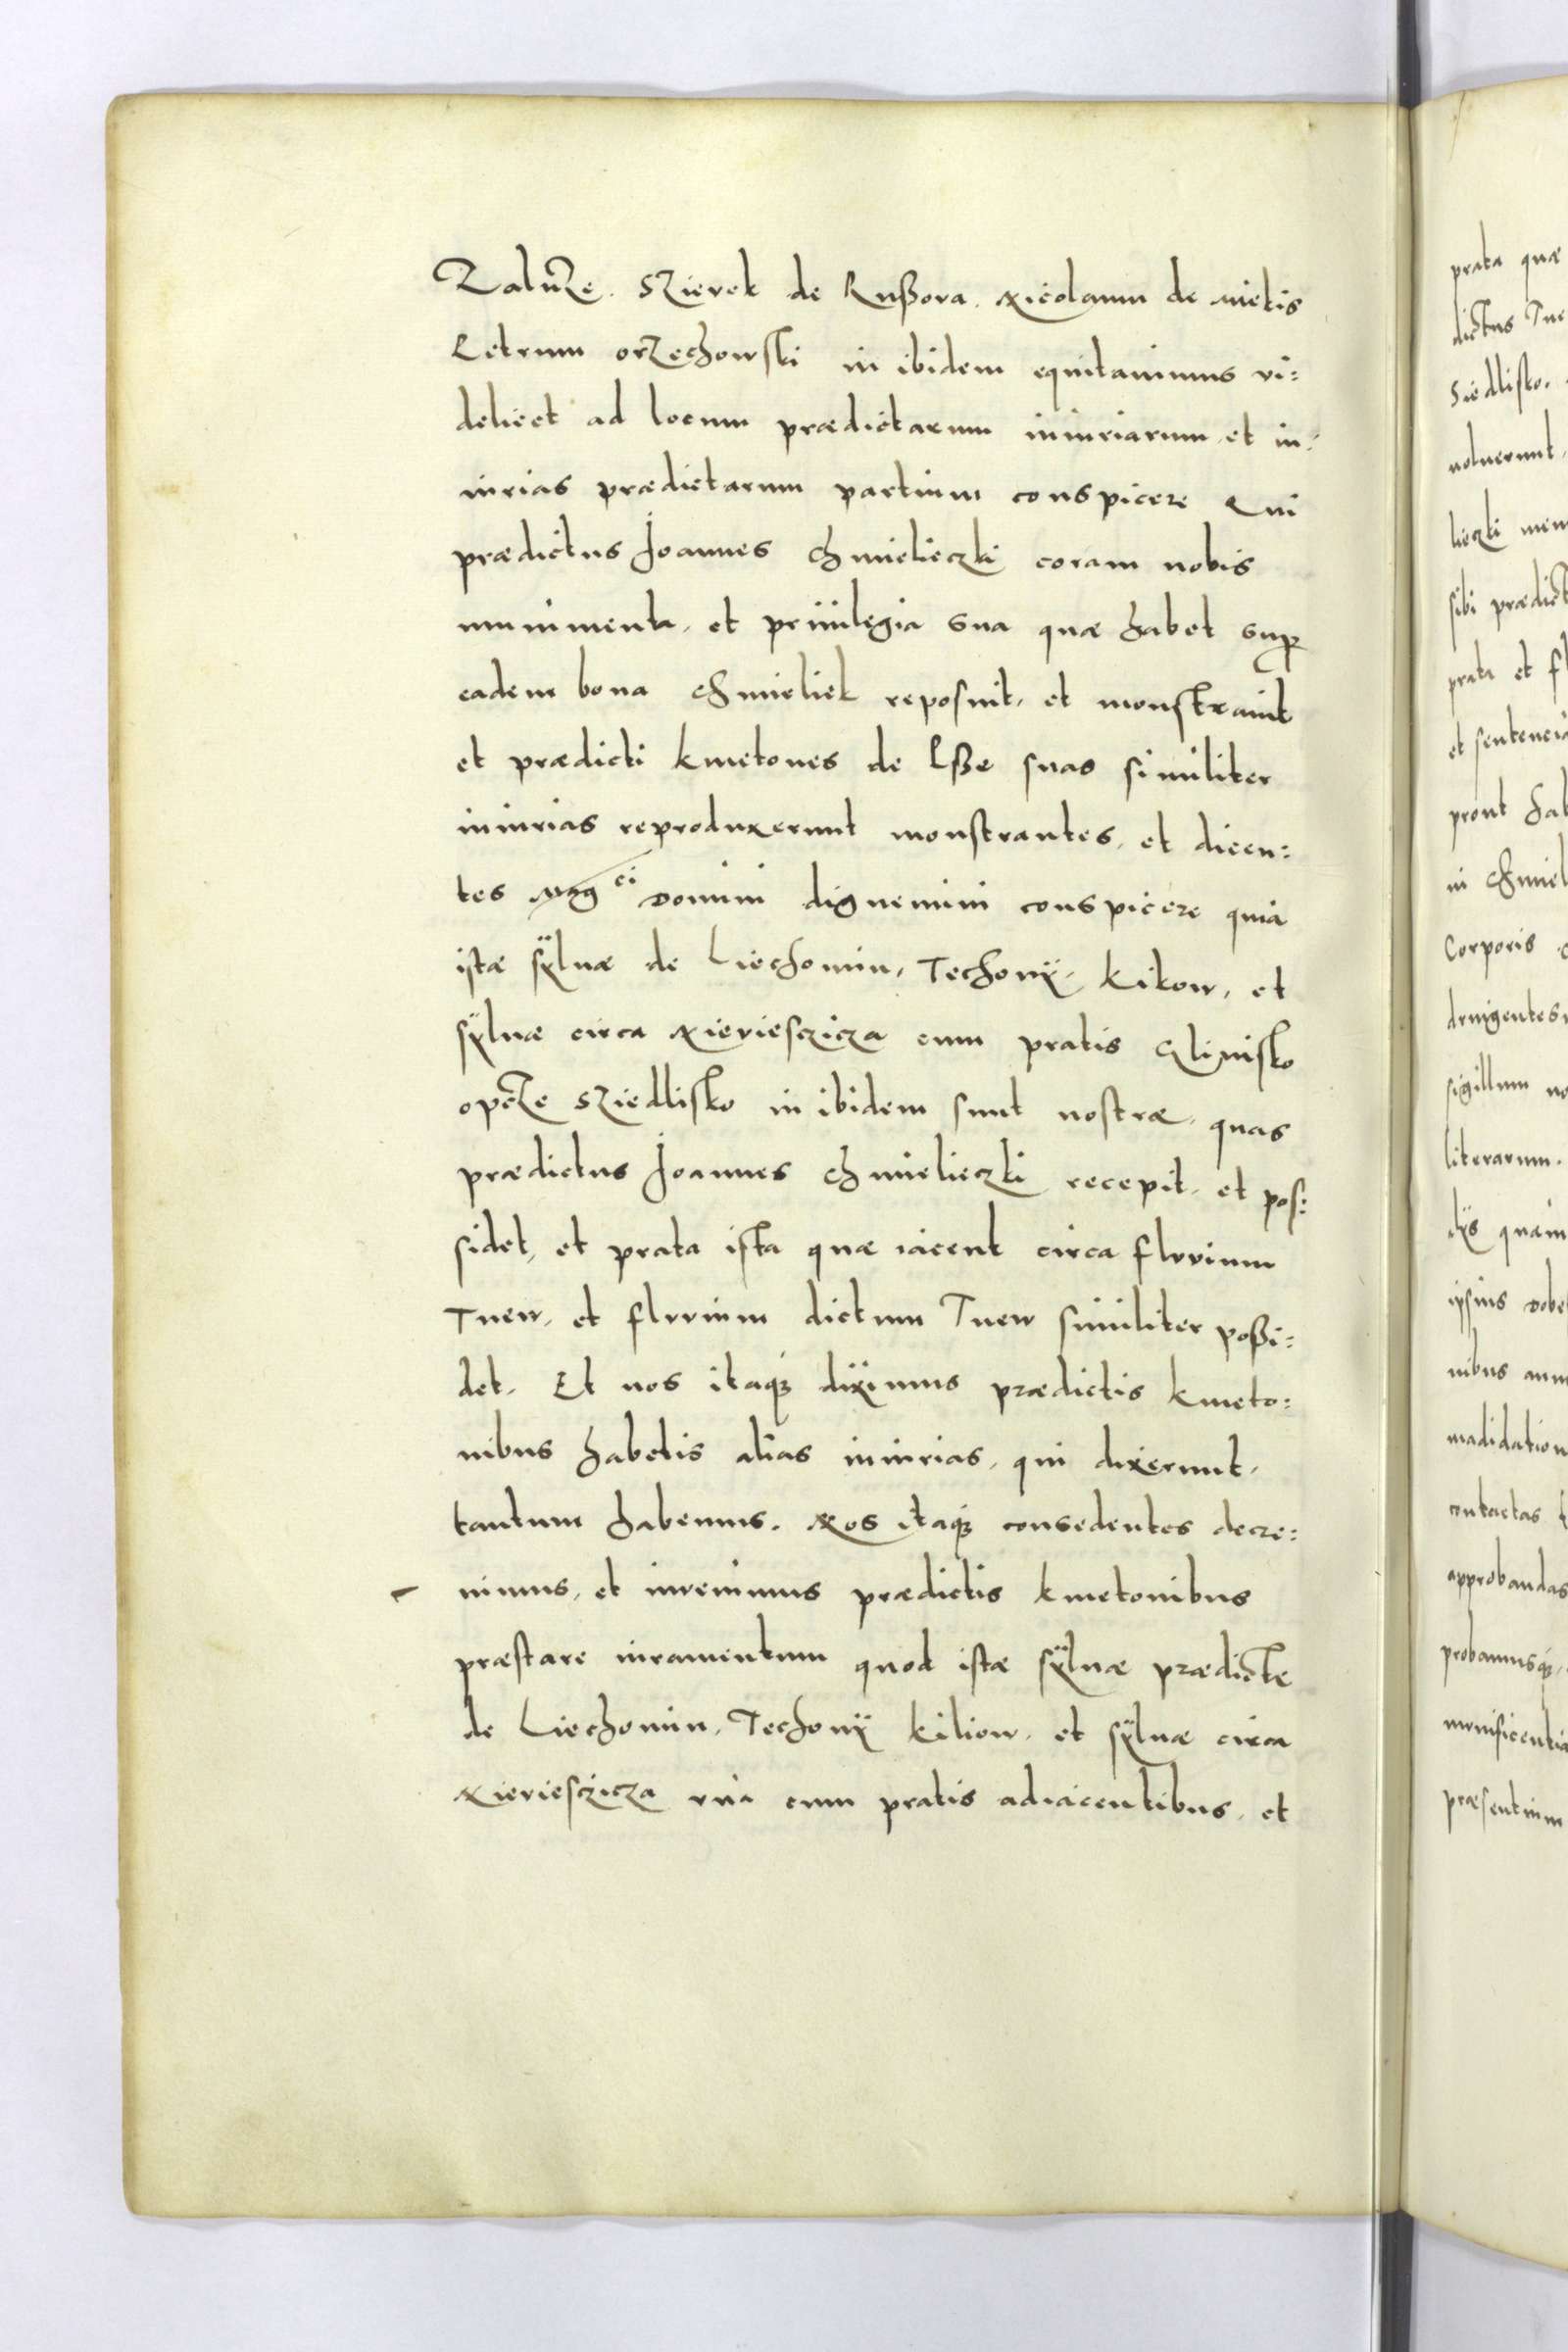 Zaluze. Szierek de Russora. Nicolaum de mietis
Petrum orzechowski in ibidem equitauimus vi=
delicet ad locum prædictarum iniuriarum, et in=
iurias prædictarum partium conspicere Qui
prædictus Joannes Chmieliczki coram nobis
munimenta, et priuilegia sua quæ habet sup
eadem bona Chmieliek reposuit, et monstrauit
et prædicti kmetones de Lsze suas similiter
iniurias reproduxerunt monstrantes, et dicen=
tes Mag^ci Domini dignemini conspicere quia
istæ sÿluæ de Liechomin, Techonÿ, Kikow, et
sÿluæ circa Nieriesczicza cum pratis Glinisko
opcze Sziedlisko in ibidem sunt nostræ, quas
prædictus Joannes Chmieliczki recepit, et pos=
sidet, et prata ista quæ iacent circa fluuium
Tuew, et fluuium dictum Tuew similiter possi=
det. Et nos itaq diximus prædictis kmeto=
nibus habetis alias iniurias, qui dixerunt,
tantum habemus. Nos itaq consedentes decre=
uimus, et inuenimus prædictis kmetonibus
præstare iuramentum quod istæ sÿluæ prædicte
de Liechomin, Techonÿ Kikow, et sÿluæ circa
Nieriesczicza vna cum pratis adiacentibus, et
prata quæ
dictus Tue
Siedlisko.
uoluerunt,
liczki
sibi prædict
prata et fl
et sentencia
prout hab
in Chmiel
Corporis
sigillum no
literarum.
ipsius
nibus
madidation
contactas
approbandas
probamusq,
munificentia
præsentium